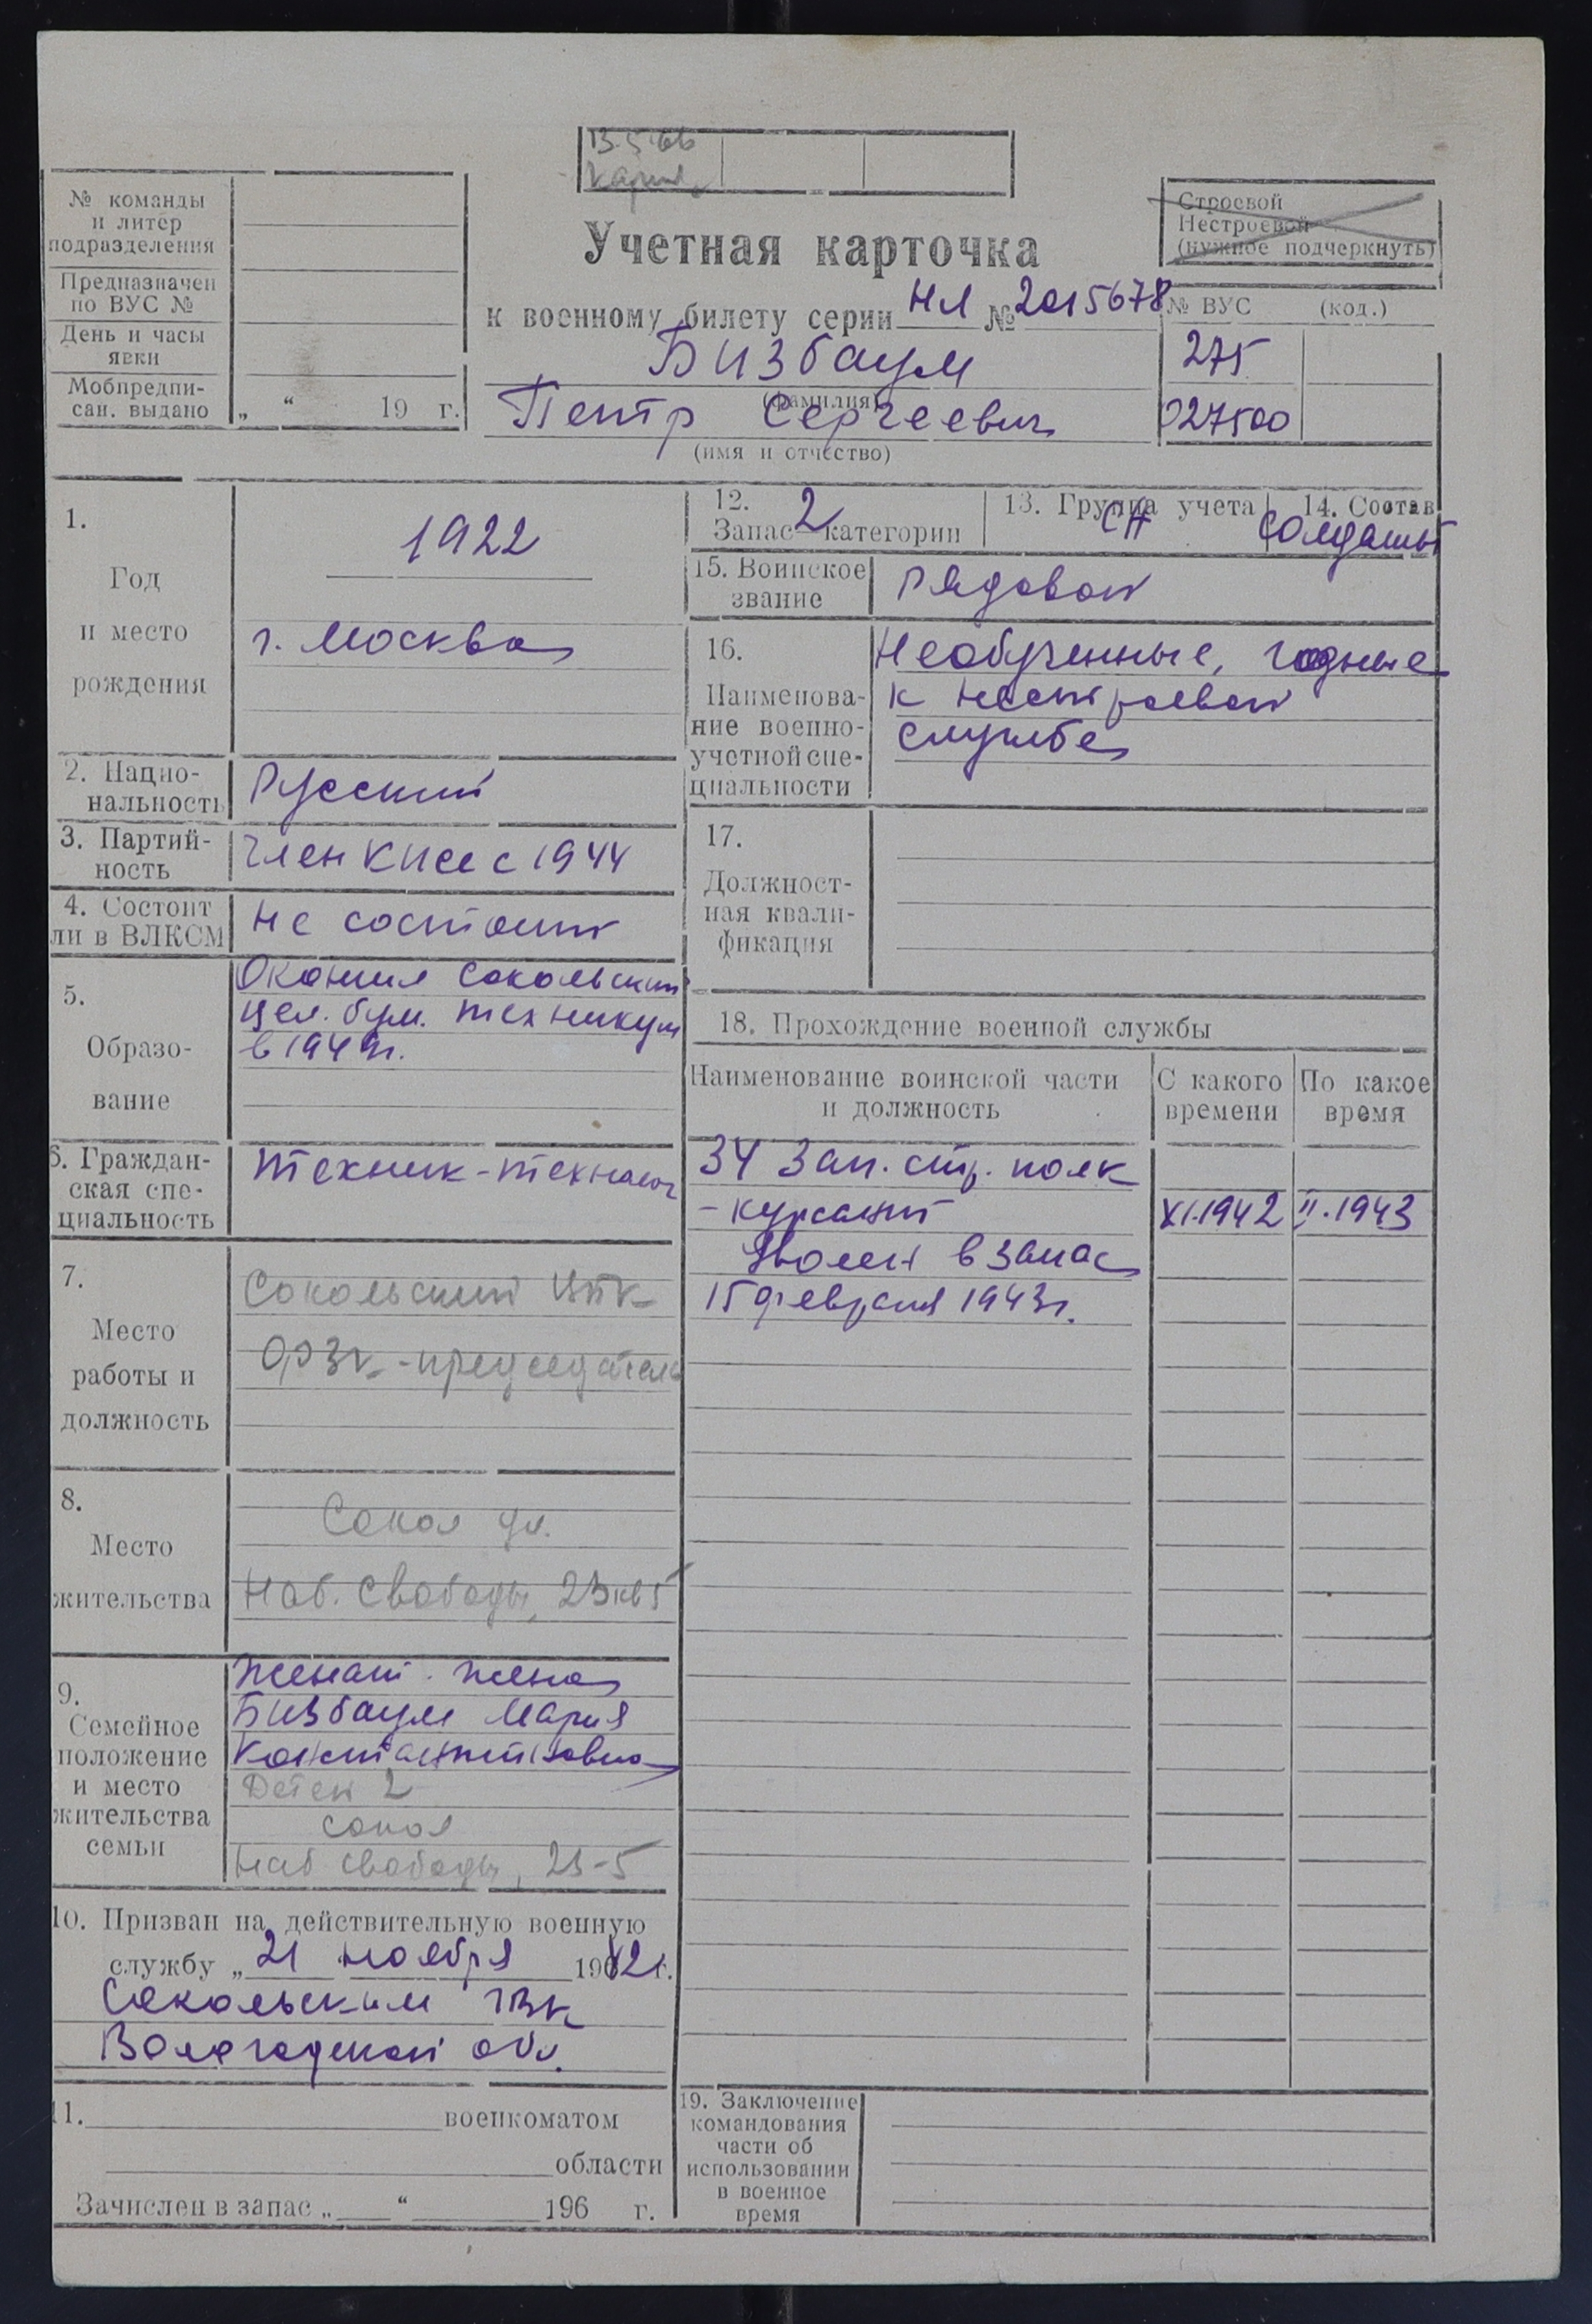 13.5.66
№ команды
и литер
подразделения
Предназначен
по ВУС №
День и часы
явки
Мобпредпи-
сан. выдано „ “ 19 г.
Учетная карточка
к военному билету серии НЛ № 2015678
Бизбаум
(фамилия)
Петр Сергеевич
(имя и отчество)
Строевой
Нестроевой
(нужное подчеркнуть)
№ ВУС (код.)
275
027500
1.
Год
и место
рождения
1922
г. Москва
2. Нацио-
нальность
Русский
3. Партий-
ность
Член КПСС с 1944
4. Состоит
ли в ВЛКСМ
Не состоит
5.
Образо-
вание
Окончил Сокольский
цел. бум. техникум
в 1949г.
6. Граждан-
ская спе-
циальность
Техник-технолог
7.
Место
работы и
должность
Сокольский ЦБК
-председатель
8.
Место
жительства
Сокол ул.
Наб. Свободы, 23 кв 5
9.
Семейное
положение
и место
жительства
семьи
Женат. жена
Бизбаум Мария
Константиновна
Детей 2
Сокол
Наб Свободы, 23-5
10. Призван на действительную военную
службу „ 21 “ ноября 1942г.
Сокольским ГВК
Вологодской обл.
11. военкоматом
области
Зачислен в запас „ “ 196 г.
12.
Запас 2 категории
13. Группа учета
СА
14. Состав
Солдаты
15. Воинское
звание
Рядовой
16.
Наименова-
ние военно-
учетной спе-
циальности
Необученные, годные
к нестроевой
службе
17.
Должност-
ная квали-
фикация
18. Прохождение военной службы
Наименование воинской части
и должность
С какого
времени
По какое
время
34 Зап. стр. полк
- курсант XI.1942 II.1943
Уволен в запас
15 февраля 1943г.
19. Заключение
командования
части об
использовании
в военное
время